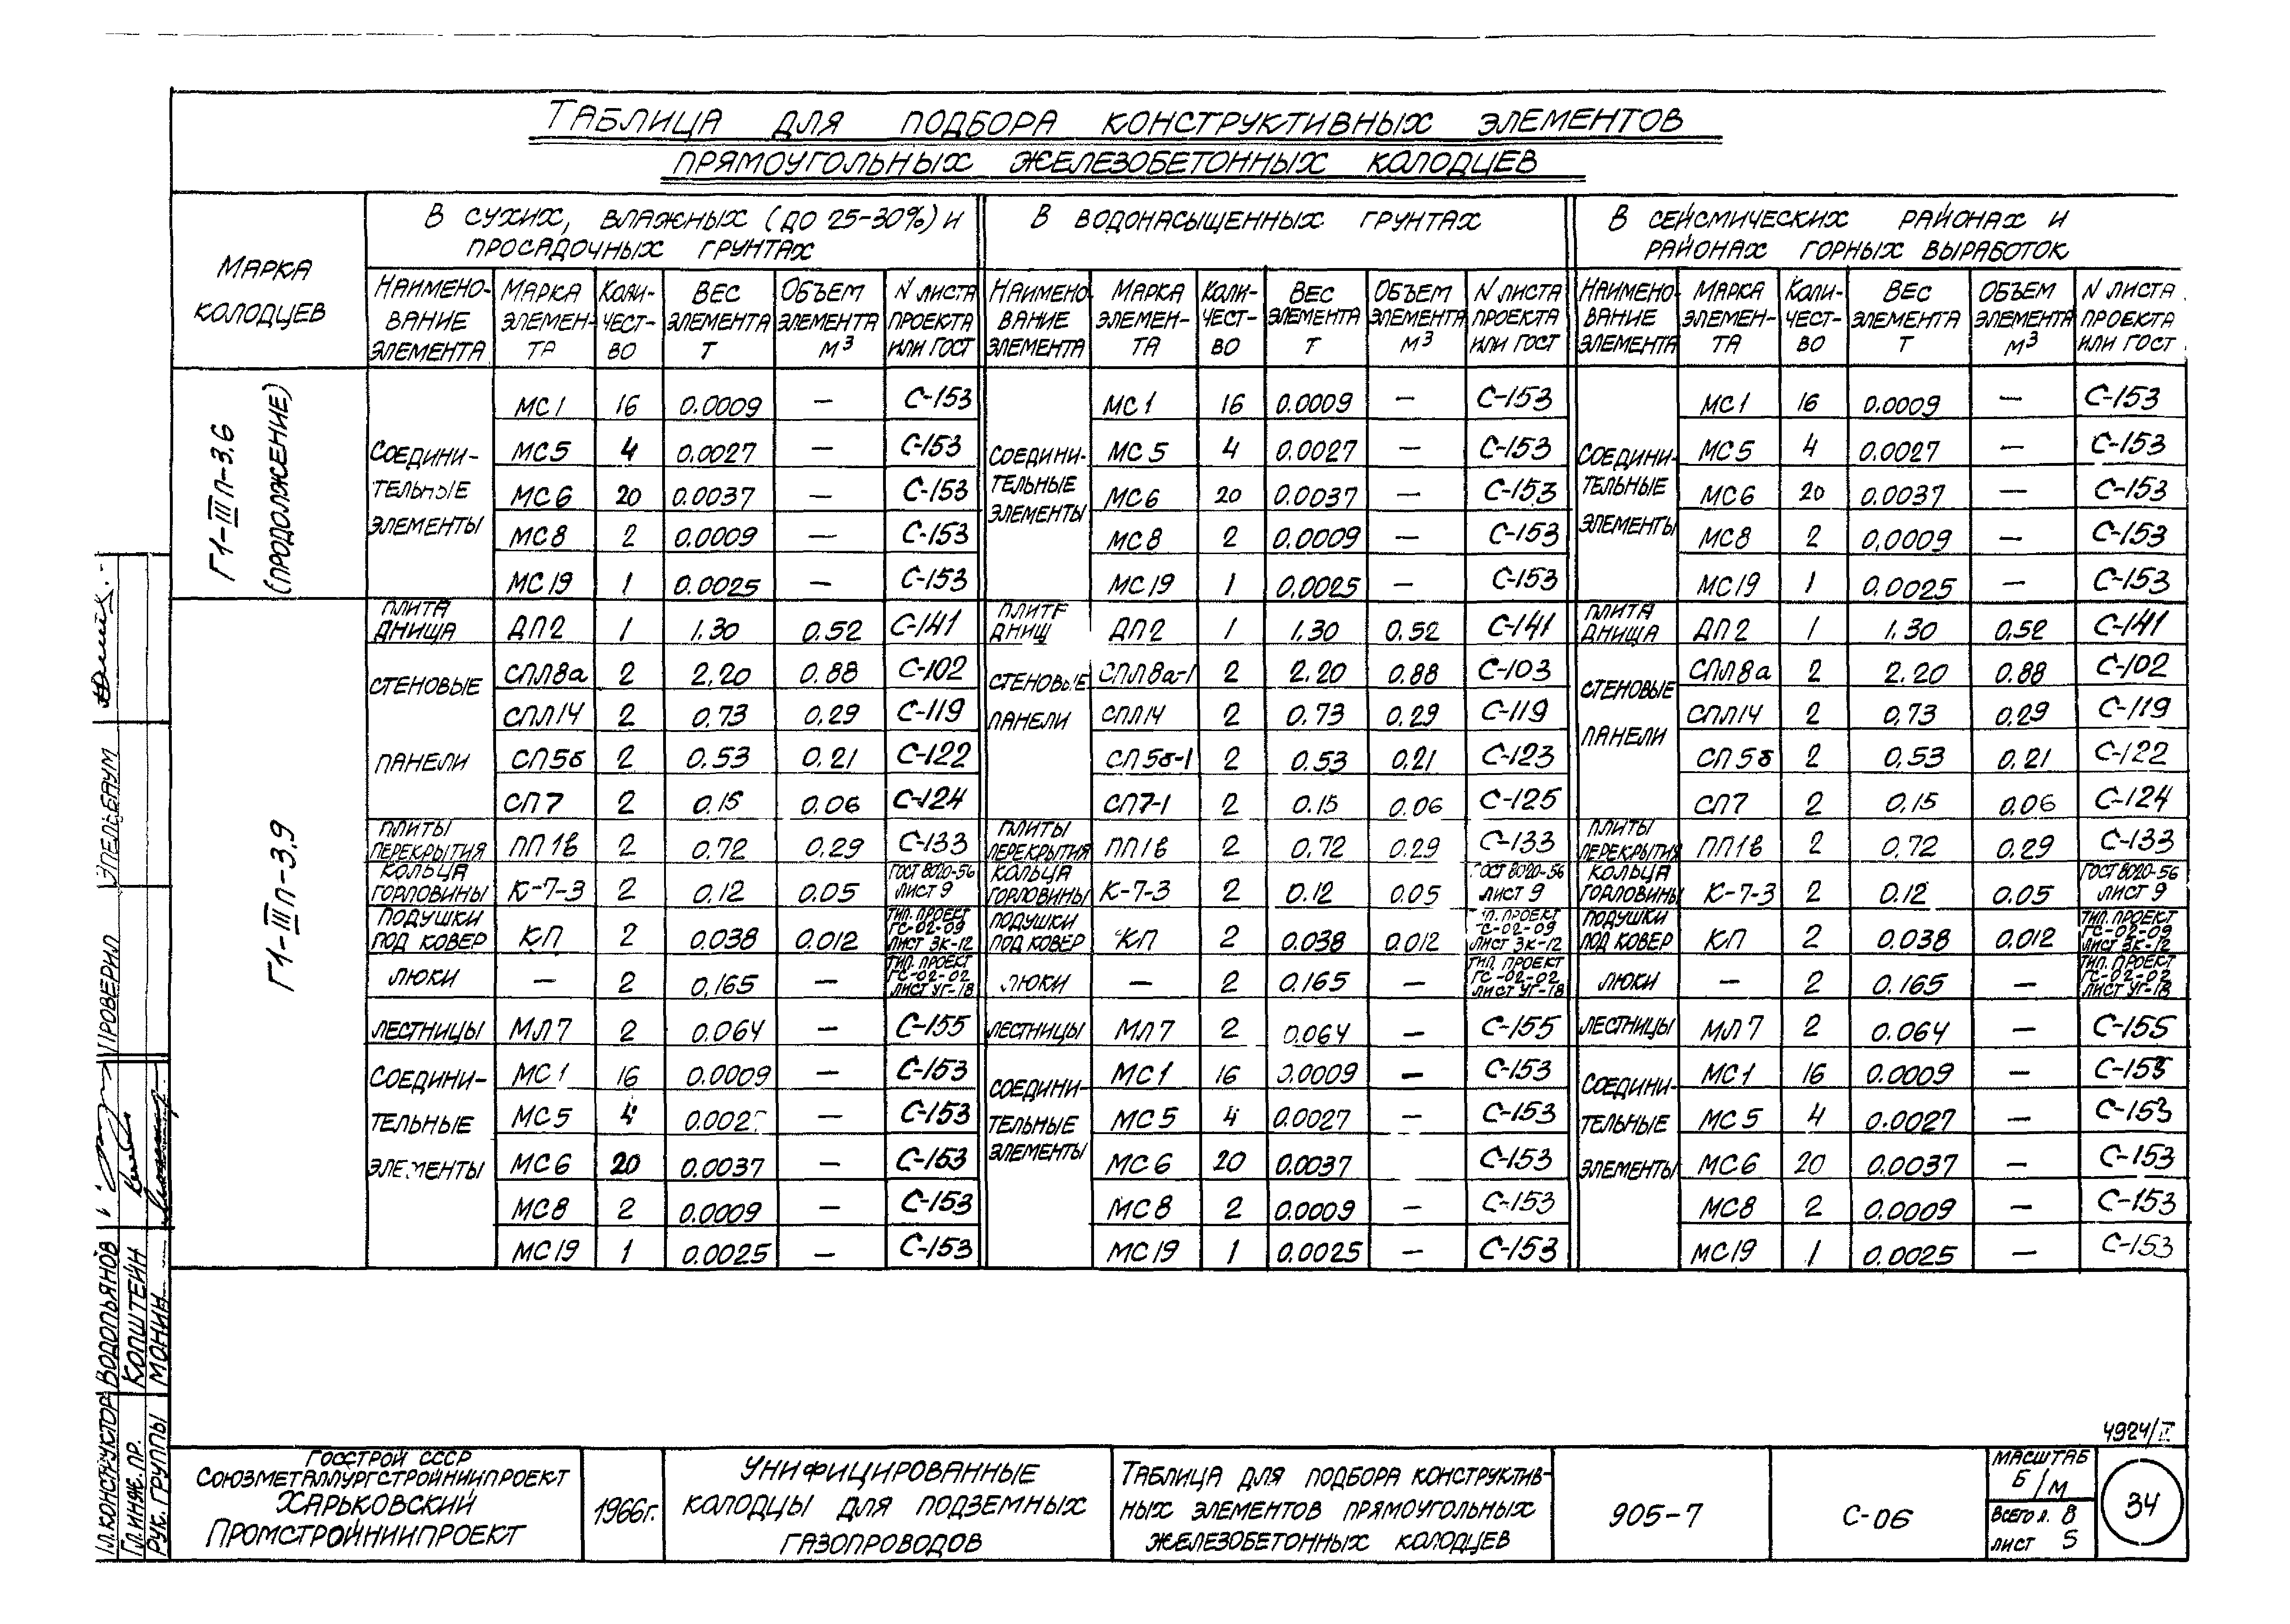 ТАБЛИЦА ДЛЯ ПОДБОРА КОНСТРУКТИВНЫХ ЭЛЕМЕНТОВ
ПРЯМОУГОЛЬНЫХ ЖЕЛЕЗОБЕТОННЫХ КОЛОДЦЕВ
МАРКА КОЛОДЦЕВ
В СУХИХ, ВЛАЖНЫХ (ДО 25-30%) И ПРОСАДОЧНЫХ ГРУНТАХ
В ВОДОНАСЫЩЕННЫХ ГРУНТАХ
В СЕЙСМИЧЕСКИХ РАЙОНАХ И РАЙОНАХ ГОРНЫХ ВЫРАБОТОК
НАИМЕНО-ВАНИЕ ЭЛЕМЕНТА МАРКА ЭЛЕМЕН-ТА КОЛИ-ЧЕСТ-ВО ВЕС ЭЛЕМЕНТА Т ОБЪЕМ ЭЛЕМЕНТА М3 N ЛИСТА ПРОЕКТА ИЛИ ГОСТ
НАИМЕНО-ВАНИЕ ЭЛЕМЕНТА МАРКА ЭЛЕМЕН-ТА КОЛИ-ЧЕСТ-ВО ВЕС ЭЛЕМЕНТА Т ОБЪЕМ ЭЛЕМЕНТА М3 N ЛИСТА ПРОЕКТА ИЛИ ГОСТ
НАИМЕНО-ВАНИЕ ЭЛЕМЕНТА МАРКА ЭЛЕМЕН-ТА КОЛИ-ЧЕСТ-ВО ВЕС ЭЛЕМЕНТА Т ОБЪЕМ ЭЛЕМЕНТА М3 N ЛИСТА ПРОЕКТА ИЛИ ГОСТ
Г1-IIIП-3.6 (ПРОДОЛЖЕНИЕ)
СОЕДИНИ-ТЕЛЬНЫЕ ЭЛЕМЕНТЫ СОЕДИНИ-ТЕЛЬНЫЕ ЭЛЕМЕНТЫ СОЕДИНИ-ТЕЛЬНЫЕ ЭЛЕМЕНТЫ
МС1 16 0.0009 — С-153 МС1 16 0.0009 — С-153 МС1 16 0.0009 — С-153
МС5 4 0.0027 — С-153 МС5 4 0.0027 — С-153 МС5 4 0.0027 — С-153
МС6 20 0.0037 — С-153 МС6 20 0.0037 — С-153 МС6 20 0.0037 — С-153
МС8 2 0.0009 — С-153 МС8 2 0.0009 — С-153 МС8 2 0,0009 — С-153
МС19 1 0.0025 — С-153 МС19 1 0.0025 — С-153 МС19 1 0.0025 — С-153
Г1-IIIП-3.9
ПЛИТА ДНИЩА ДП2 1 1.30 0.52 С-141 ПЛИТ ДНИЩ ДП2 1 1.30 0.52 С-141 ПЛИТА ДНИЩА ДП2 1 1.30 0.52 С-141
СТЕНОВЫЕ ПАНЕЛИ СТЕНОВЫЕ ПАНЕЛИ СТЕНОВЫЕ ПАНЕЛИ
СПЛ8а 2 2.20 0.88 С-102 СПЛ8а-1 2 2.20 0.88 С-103 СПЛ8а 2 2.20 0.88 С-102
СПЛ14 2 0.73 0.29 С-119 СПЛ14 2 0.73 0.29 С-119 СПЛ14 2 0,73 0.29 С-119
СП5б 2 0.53 0.21 С-122 СП5б-1 2 0.53 0.21 С-123 СП5б 2 0.53 0.21 С-122
СП7 2 0.15 0.06 С-124 СП7-1 2 0.15 0.06 С-125 СП7 2 0.15 0.06 С-124
ПЛИТЫ ПЕРЕКРЫТИЯ ПП1в 2 0.72 0.29 С-133 ПЛИТЫ ПЕРЕКРЫТИЯ ПП1в 2 0.72 0.29 С-133 ПЛИТЫ ПЕРЕКРЫТИЯ ПП1в 2 0.72 0.29 С-133
КОЛЬЦА ГОРЛОВИНЫ К-7-3 2 0.12 0.05 ГОСТ 8020-56 ЛИСТ 9 КОЛЬЦА ГОРЛОВИНЫ К-7-3 2 0.12 0.05 ГОСТ 8020-56 ЛИСТ 9 КОЛЬЦА ГОРЛОВИНЫ К-7-3 2 0.12 0.05 ГОСТ 8020-56 ЛИСТ 9
ПОДУШКИ ПОД КОВЕР КП 2 0.038 0.012 ТИП. ПРОЕКТ ГС-02-09 ЛИСТ ЗК-12 ПОДУШКИ ПОД КОВЕР КП 2 0.038 0.012 П. ПРОЕКТ С-02-09 ЛИСТ ЗК-12 ПОДУШКИ ПОД КОВЕР КП 2 0.038 0.012 ТИП. ПРОЕКТ ГС-02-09 ЛИСТ ЗК-12
ЛЮКИ — 2 0.165 — ТИП. ПРОЕКТ ГС-02-02 ЛИСТ УГ-18 ЛЮКИ — 2 0.165 — ТИП. ПРОЕКТ ГС-02-02 ЛИСТ УГ-18 ЛЮКИ — 2 0.165 — ТИП. ПРОЕКТ ГС-02-02 ЛИСТ УГ-18
ЛЕСТНИЦЫ МЛ7 2 0.064 — С-155 ЛЕСТНИЦЫ МЛ7 2 0.064 — С-155 ЛЕСТНИЦЫ МЛ7 2 0.064 — С-155
СОЕДИНИ-ТЕЛЬНЫЕ ЭЛЕМЕНТЫ СОЕДИНИ-ТЕЛЬНЫЕ ЭЛЕМЕНТЫ СОЕДИНИ-ТЕЛЬНЫЕ ЭЛЕМЕНТЫ
МС1 16 0.0009 — С-153 МС1 16 0.0009 — С-153 МС1 16 0.0009 — С-155
МС5 4 0.002 — С-153 МС5 4 0.0027 — С-153 МС5 4 0.0027 — С-153
МС6 20 0.0037 — С-153 МС6 20 0.0037 С-153 МС6 20 0.0037 — С-153
МС8 2 0.0009 — С-153 МС8 2 0.0009 — С-153 МС8 2 0.0009 — С-153
МС19 1 0.0025 — С-153 МС19 1 0.0025 — С-153 МС19 1 0.0025 — С-153
4924/II
ГОССТРОЙ СССР
СОЮЗМЕТАЛЛУРГСТРОЙНИИПРОЕКТ
ХАРЬКОВСКИЙ
ПРОМСТРОЙНИИПРОЕКТ
1966г.
УНИФИЦИРОВАННЫЕ
КОЛОДЦЫ ДЛЯ ПОДЗЕМНЫХ
ГАЗОПРОВОДОВ
ТАБЛИЦА ДЛЯ ПОДБОРА КОНСТРУКТИВ-
НЫХ ЭЛЕМЕНТОВ ПРЯМОУГОЛЬНЫХ
ЖЕЛЕЗОБЕТОННЫХ КОЛОДЦЕВ
905-7
С-06
МАСШТАБ
Б/М
ВСЕГО Л. 8
ЛИСТ 5
34
ГЛ. КОНСТРУКТОР ВОДОПЬЯНОВ
ГЛ. ИНЖ. ПР. КОПШТЕЙН
РУК. ГРУППЫ МОНИН
ПРОВЕРИЛ ЭПЕЛЬБАУМ